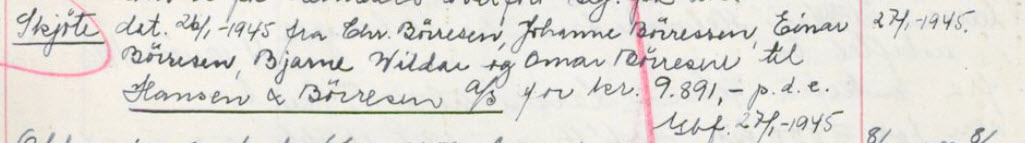 Skjöte dat. 26/1-1945 fra Chr. Börresen, Johanne Börressen, Einar 27/1-1945.
Börresen, Bjarne Wildar og Omar Börresen til
Hansen & Börresen A/S for kr. 9.891,- p.d.e.
27/1-1945
8/ 8/